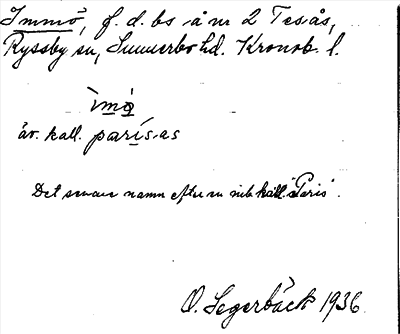 Immö, f. d. bs å nr 2 Tesås,
Ryssby sn, Sunnerbo hd. Kronob. l.
ìmö̀
äv. kall. parís-as
Det senare namn efter en inb. kall. "Paris".
O. Segerbäck 1936.